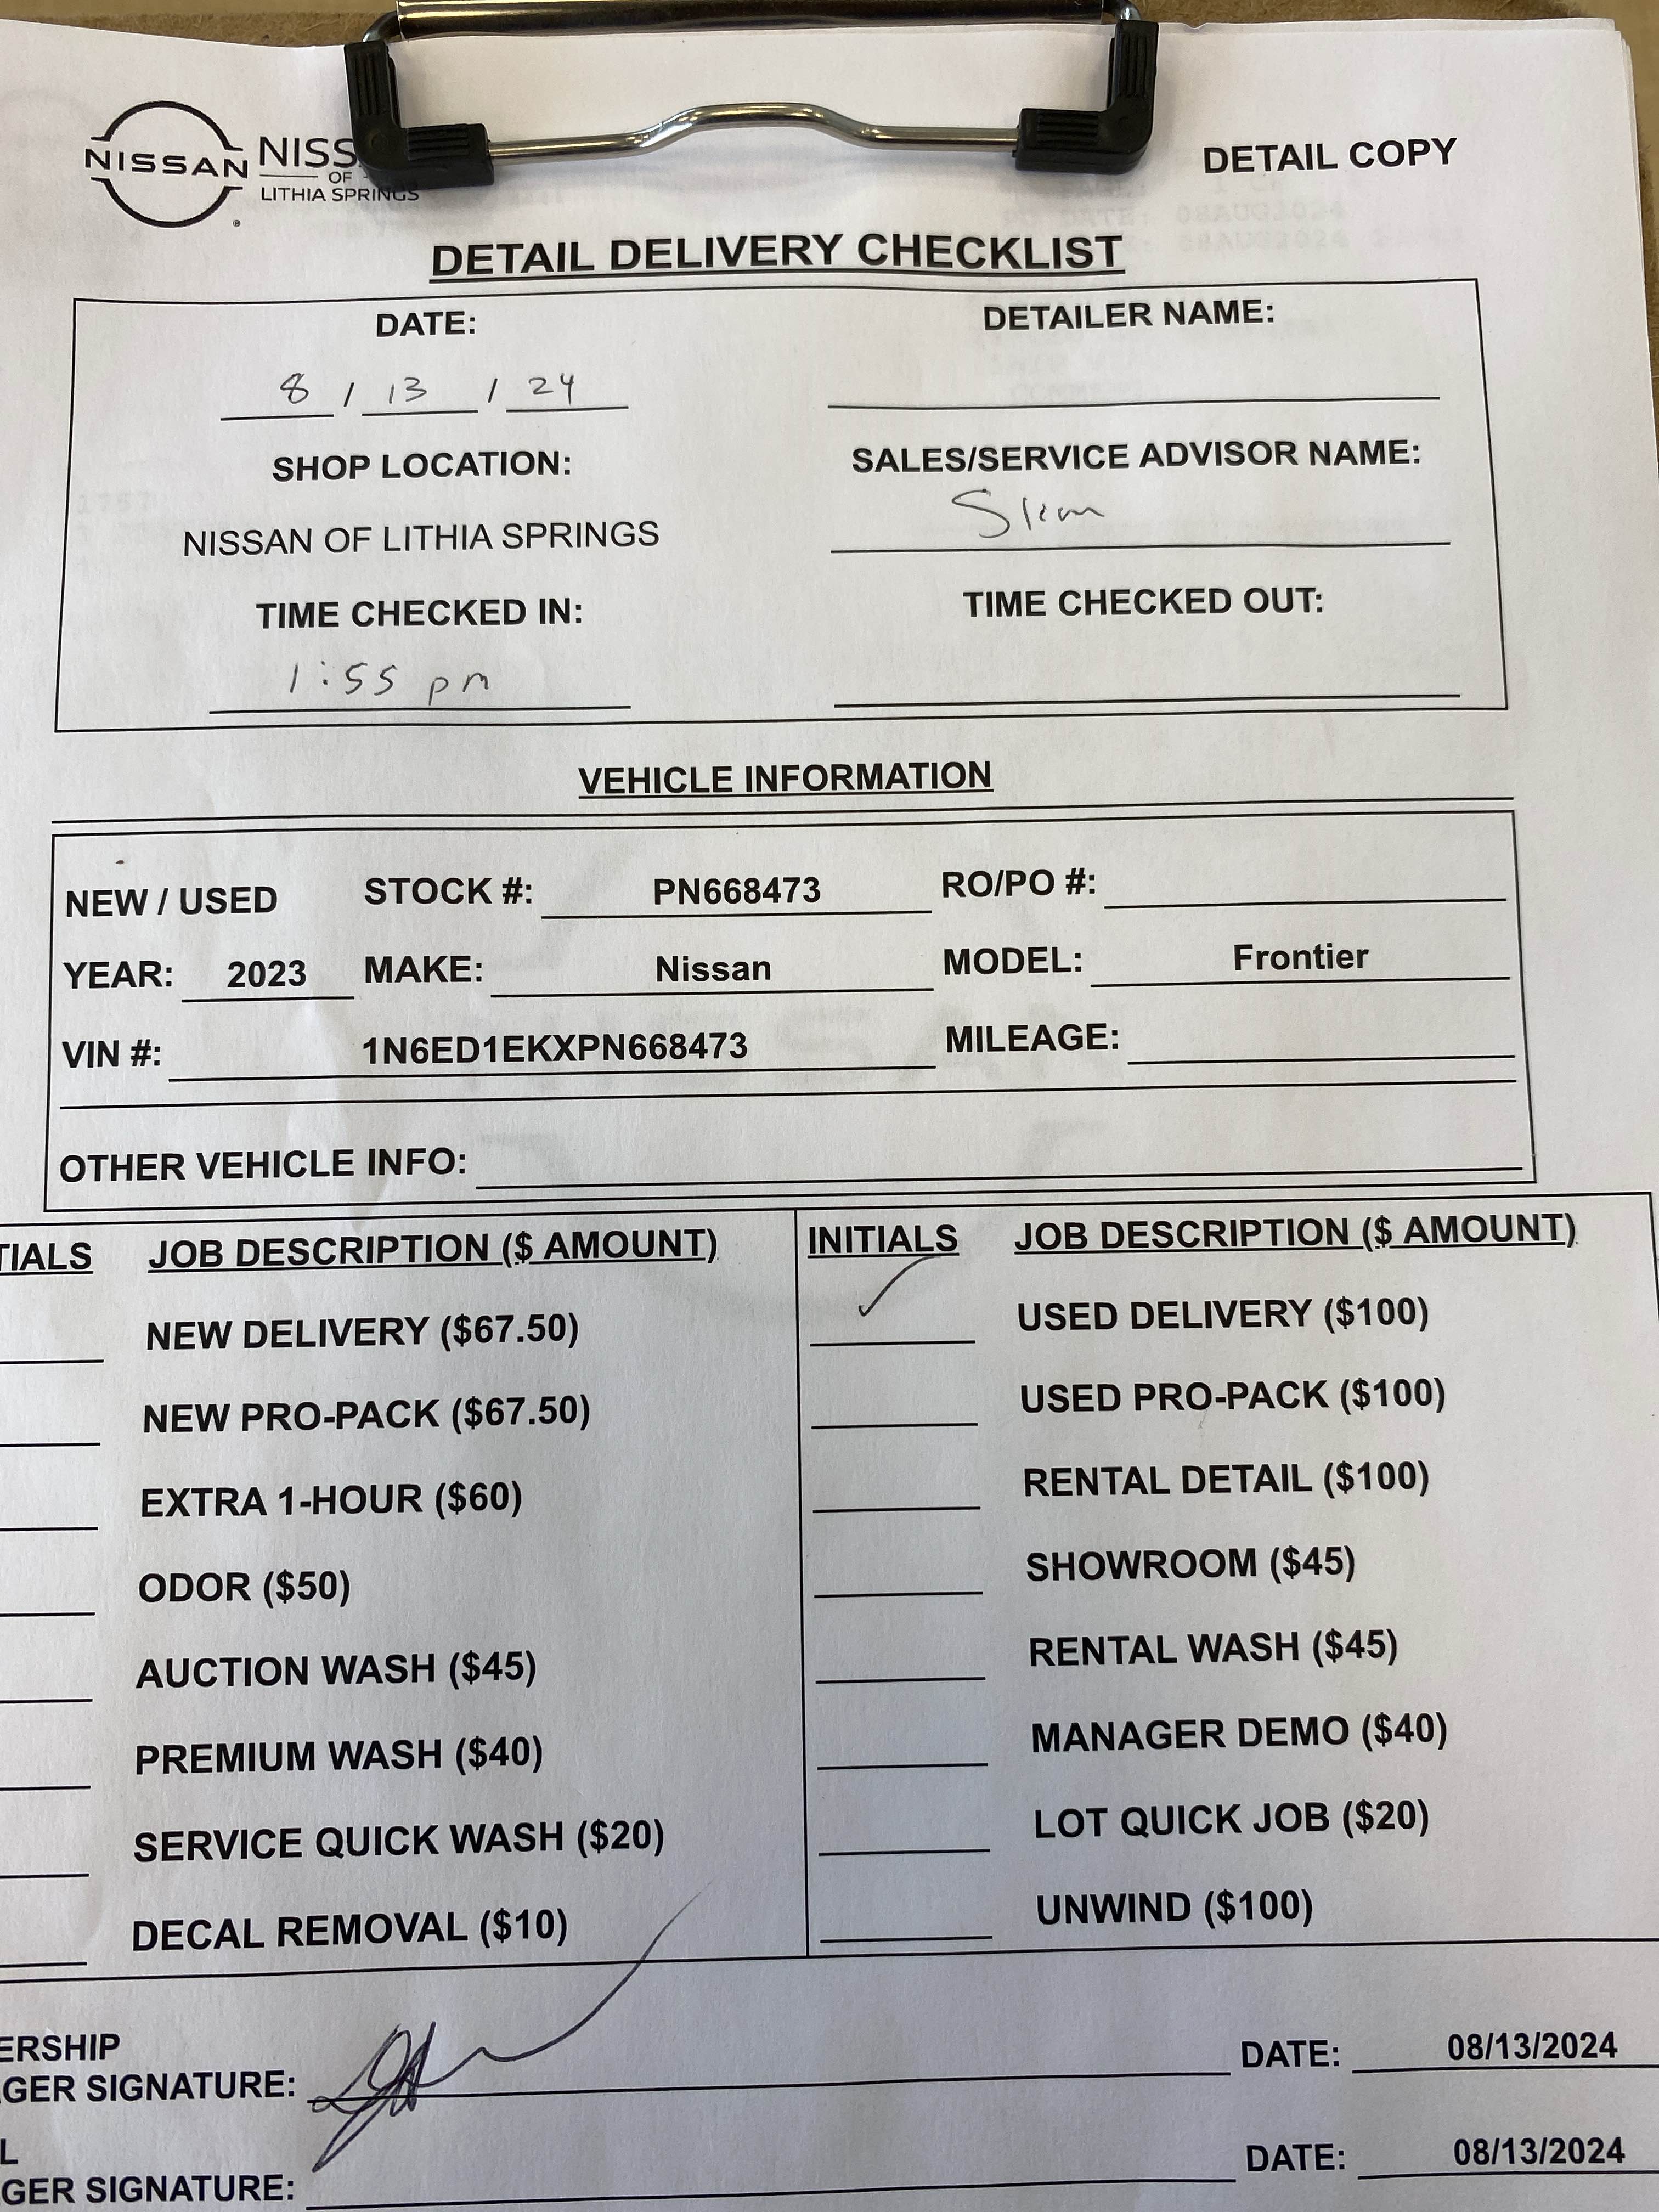 NISSAN NISS
OF
LITHIA SPRINGS
DETAIL COPY
DETAIL DELIVERY CHECKLIST
DATE: DETAILER NAME:
8 / 13 / 24
SHOP LOCATION: SALES/SERVICE ADVISOR NAME:
Slim
NISSAN OF LITHIA SPRINGS
TIME CHECKED IN: TIME CHECKED OUT:
1:55 pm
VEHICLE INFORMATION
NEW / USED STOCK #: PN668473 RO/PO #:
YEAR: 2023 MAKE: Nissan MODEL: Frontier
VIN #: 1N6ED1EKXPN668473 MILEAGE:
OTHER VEHICLE INFO:
TIALS JOB DESCRIPTION ($ AMOUNT) INITIALS JOB DESCRIPTION ($ AMOUNT)
NEW DELIVERY ($67.50) ✓ USED DELIVERY ($100)
NEW PRO-PACK ($67.50) USED PRO-PACK ($100)
EXTRA 1-HOUR ($60) RENTAL DETAIL ($100)
ODOR ($50) SHOWROOM ($45)
AUCTION WASH ($45) RENTAL WASH ($45)
PREMIUM WASH ($40) MANAGER DEMO ($40)
SERVICE QUICK WASH ($20) LOT QUICK JOB ($20)
DECAL REMOVAL ($10) UNWIND ($100)
ERSHIP
GER SIGNATURE: DATE: 08/13/2024
L
GER SIGNATURE: DATE: 08/13/2024